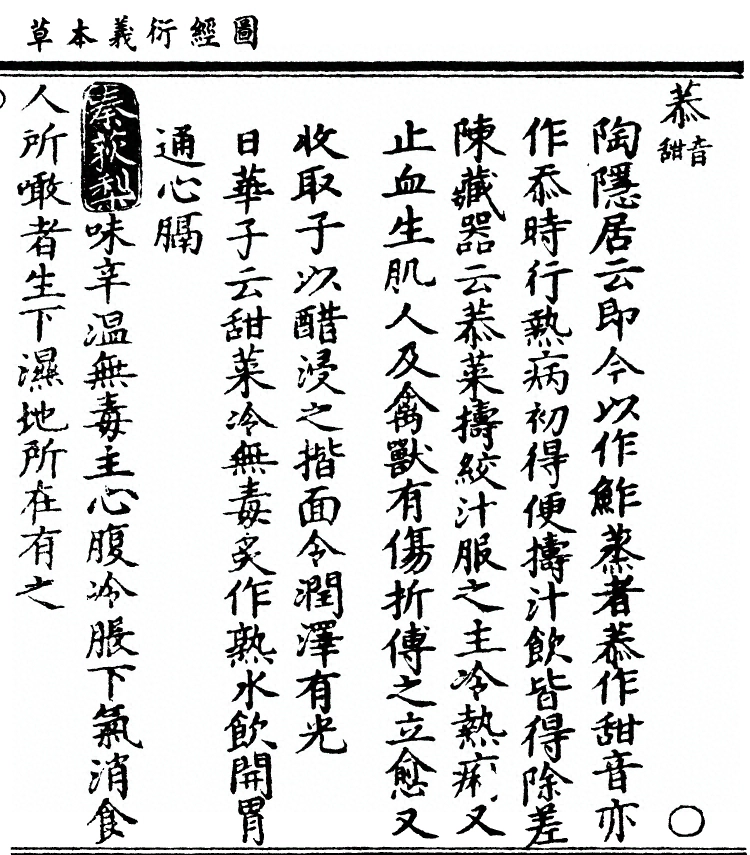 圖經衍義本草
菾音甜
陶隱居云即今以作鮓蒸者菾作甜音亦
作忝時行熱病初得便擣汁飲皆得除差
陳藏器云菾菜擣絞汁服之主冷熱痢又
止血生肌人及禽獸有傷折傅之立愈又
收取子以醋浸之揩面令潤澤有光
日華子云甜菜冷無毒炙作熟水飲開胃
通心膈
秦荻梨味辛溫無毒主心腹冷脹下氣消食
人所噉者生下濕地所在有之